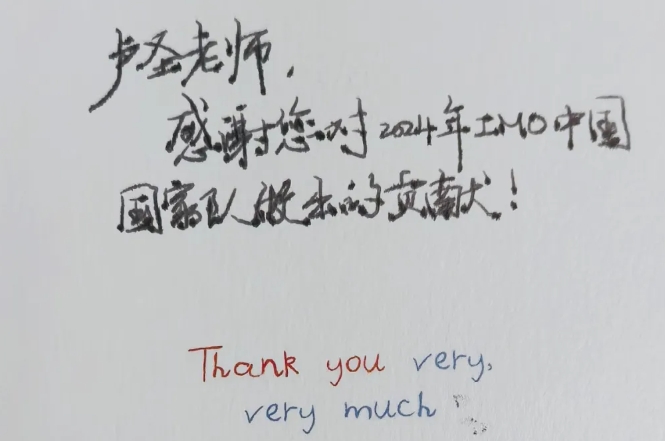 卢圣老师，
感谢您对2024年IMO中国
国家队做出的贡献！
Thank you very,
very much